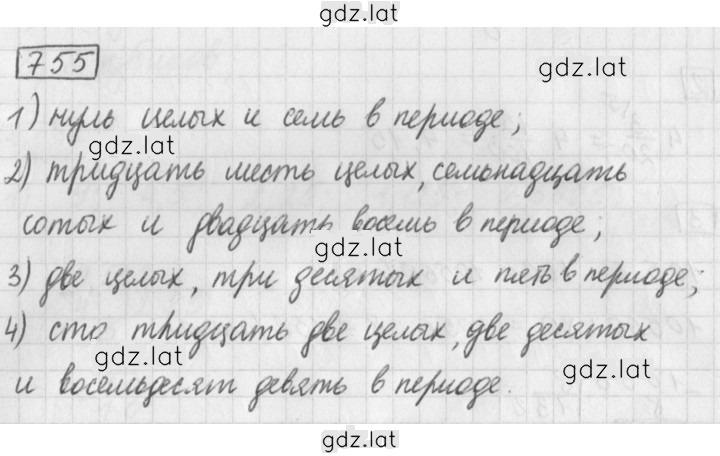 gdz.lat
755
gdz.lat
1) нуль целых и семь в периоде;
gdz.lat
2) тридцать шесть целых, семьнадцать
сотых и двадцать восемь в периоде;
gdz.lat
3) две целых, три десятых и пять в периоде;
4) сто тридцать две целых, две десятых
gdz.lat
gdz.lat
и восемьдесят девять в периоде.
gdz.lat